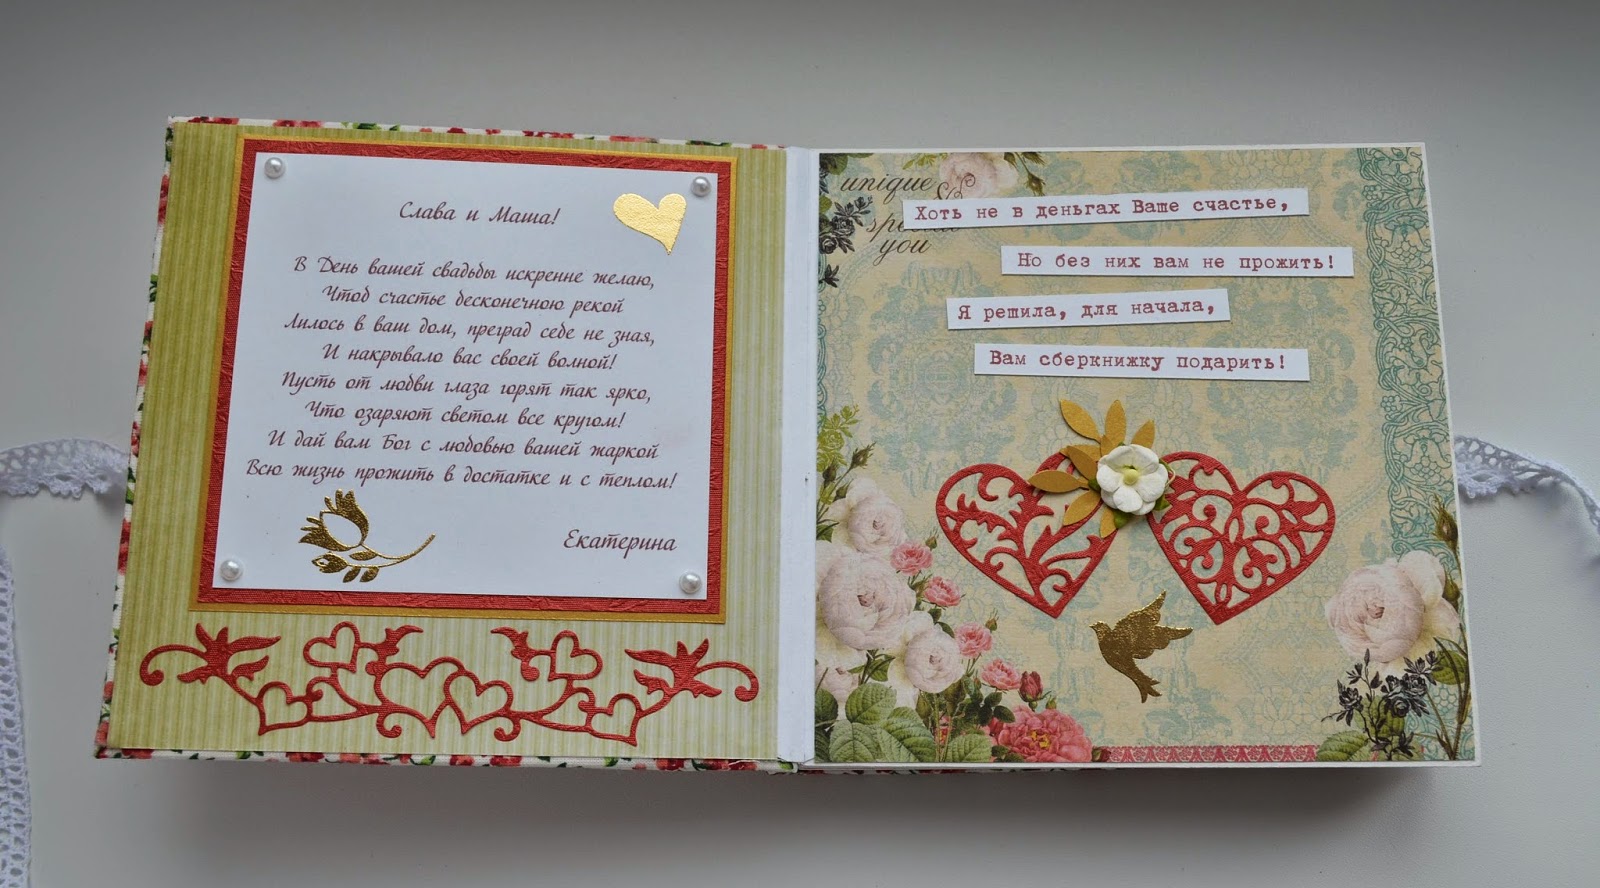 Слава и Маша!
В День вашей свадьбы искренне желаю,
Чтоб счастье бесконечною рекой
Лилось в ваш дом, преград себе не зная,
И накрывало вас своей волной!
Пусть от любви глаза горят так ярко,
Что озаряют светом все кругом!
И дай вам Бог с любовью вашей жаркой
Всю жизнь прожить в достатке и с теплом!
Екатерина
unique
&
you
Хоть не в деньгах Ваше счастье,
Но без них вам не прожить!
Я решила, для начала,
Вам сберкнижку подарить!